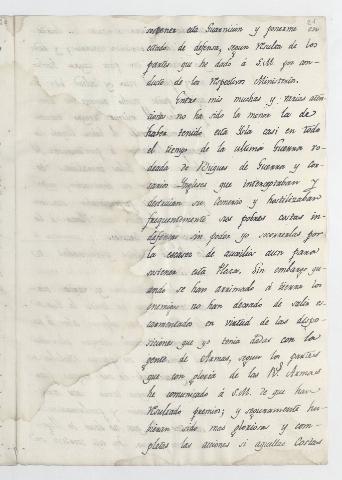 21
sostener esta Guarnicion y ponerme en
estado de defensa, segun resulta de los
partes que he dado á S.M. por con-
ducto de los respectivos Ministerios.
Entre mis muchas y varias aten-
ciones no ha sido la menor la de
haber tenido esta Isla casi en todo
el tiempo de la ultima Guerra ro-
deada de Buques de Guerra y cor-
sarios Ingleses que interceptaban y
destruian su comercio y hostilizaban
frequentemente sus pobres costas in-
defensas sin poder yo socorrerlas por
la escasez de auxilios aun para
sostener esta Plaza. Sin embargo qu-
ando se han arrimado á tierra los
enemigos no han dexado de salir es-
carmentados en virtud de las dispo-
siciones que yo tenia dadas con la
gente de Armas, segun los partes
que con gloria de las Rs Armas
he comunicado á S.M. de que han
resultado premios; y seguramente hu-
bieran sido mas gloriosas y com-
pletas las acciones si aquellas Costas